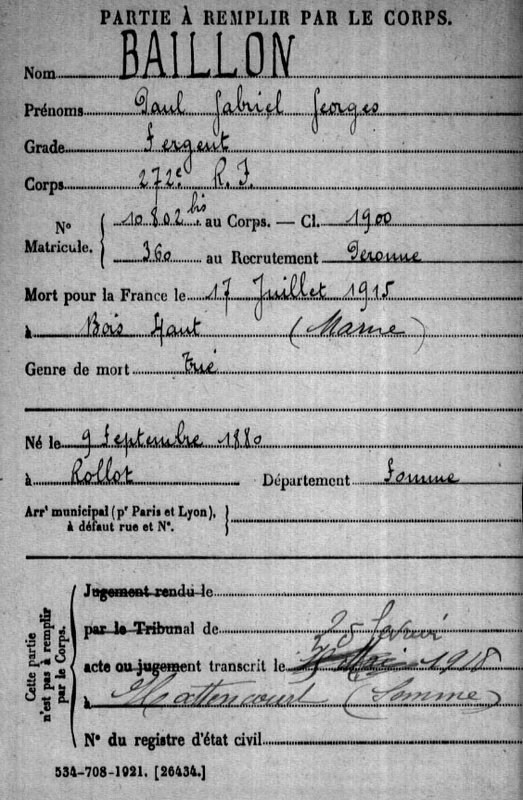 PARTIE À REMPLIR PAR LE CORPS.
Nom BAILLON
Prénoms Paul Gabriel Georges
Grade Sergent
Corps 272e R. I.
N° Matricule. { 10.802 bis au Corps. — Cl. 1900
360 au Recrutement Peronne
Mort pour la France le 17 Juillet 1915
à Bois Haut (Marne)
Genre de mort Tué
Né le 9 Septembre 1880
à Rollot Département Somme
Arrt municipal (pr Paris et Lyon), à défaut rue et N°. }
Cette partie n'est pas à remplir par le Corps.
Jugement rendu le
par le Tribunal de
25 février
acte ou jugement transcrit le 1918
à Hattencourt (Somme)
N° du registre d'état civil
534-708-1921. [26434.]